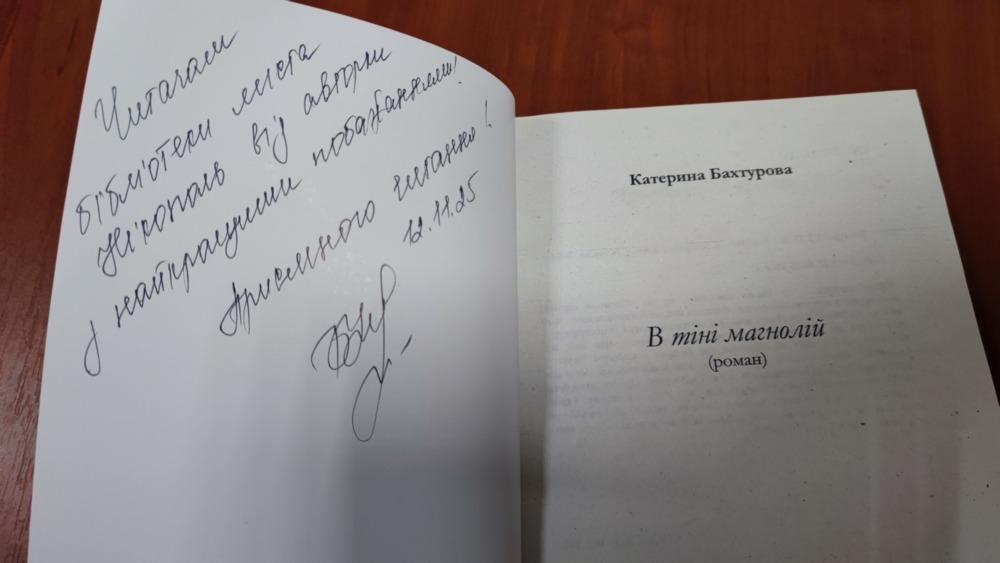 Читачам
бібліотеки міста
Нікополь від авторки
з найкращими побажаннями!
Приємного читання!
12.11.25
Катерина Бахтурова
В тіні магнолій
(роман)